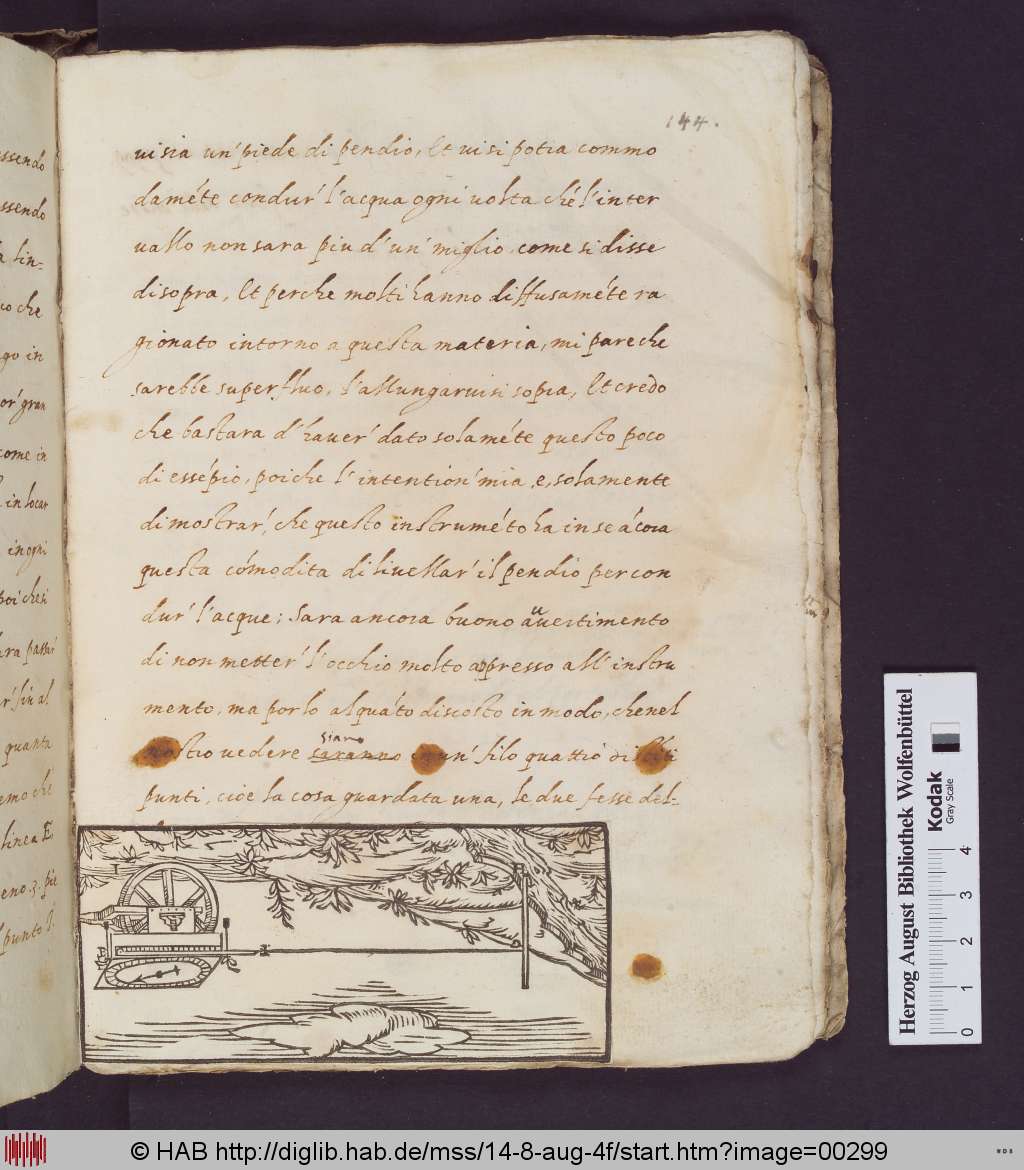 144.
vi sia un' piede di pendio, Et vi si potra commo
daméte condur' l'acqua ogni volta ché l'inter
vallo non sara piu d'un' miglio, come si disse
disopra, Et perche molti hanno diffusaméte ra
gionato intorno a questa materia, mi pare che
sarebbe superfluo, l'allungarvisi sopra, Et credo
che bastara d'haver' dato solaméte questo poco
di essépio, poiche l'intention' mia, e, solamente
dimostrar', che questo instruméto ha in se ácora
questa cómodita di livellar' il pendio per con
dur' l'acque: Sara ancora buono avvertimento
di non metter' l'occhio molto appresso all'instru
mento, ma porlo alquáto discosto in modo, che nel
siano
vedere saranno un' filo quattro
punti, cioe la cosa guardata una, le due fesse del-
ssendo
ssendo
a lin-
io che
go in
or' gran
come in
in locar
in ogni
poi che si
ara passar'
r' fin al
quanta
emo ché
linea E
eno 3. pie
l punto I.
Herzog August Bibliothek Wolfenbüttel
Kodak
Gray Scale
0 1 2 3 4
© HAB http://diglib.hab.de/mss/14-8-aug-4f/start.htm?image=00299